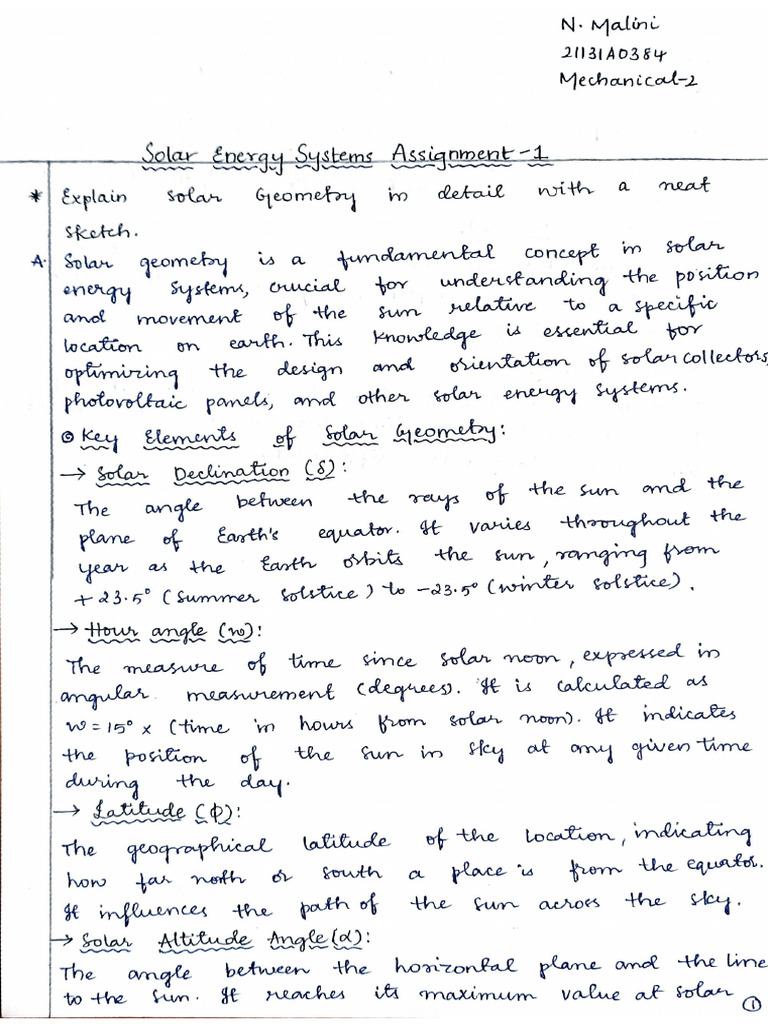 N. Malini
21131A0384
Mechanical-2
Solar Energy Systems Assignment-1
* Explain solar Geometry in detail with a neat
sketch.
A. Solar geometry is a fundamental concept in solar
energy systems, crucial for understanding the position
and movement of the sun relative to a specific
location on earth. This knowledge is essential for
optimizing the design and orientation of solar collectors,
photovoltaic panels, and other solar energy systems.
⊙ Key Elements of Solar Geometry:
→ Solar Declination (δ):
The angle between the rays of the sun and the
plane of Earth's equator. It varies throughout the
year as the Earth orbits the sun, ranging from
+23.5° (summer solstice) to -23.5° (winter solstice).
→ Hour angle (w):
The measure of time since solar noon, expressed in
angular measurement (degrees). It is calculated as
w=15° x (time in hours from solar noon). It indicates
the position of the sun in sky at any given time
during the day.
→ Latitude (Φ):
The geographical latitude of the location, indicating
how far north or south a place is from the equator.
It influences the path of the sun across the sky.
→ Solar Altitude Angle (α):
The angle between the horizontal plane and the line
to the sun. It reaches its maximum value at solar
①